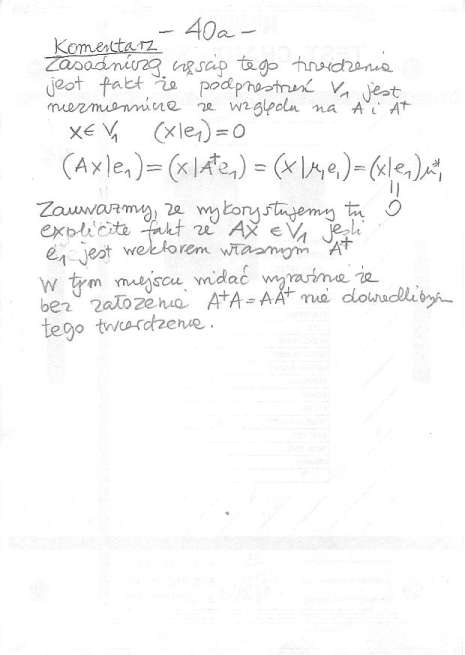 - 40a -
Komentarz
Zasadniczą częścią tego twierdzenia
jest fakt że podprzestrzeń V₁ jest
niezmiennicza ze względu na A i A⁺
x∈ V₁ (x|e₁)=0
(Ax|e₁)=(x|A⁺e₁)=(x|μ₁e₁)=(x|e₁)μ₁*
=
0
Zauważmy, że wykorzystujemy tu
explicite fakt że Ax ∈V₁ jeśli
e₁ jest wektorem własnym A⁺
W tym miejscu widać wyraźnie że
bez założenia A⁺A=AA⁺ nie dowiedlibyśmy
tego twierdzenia.